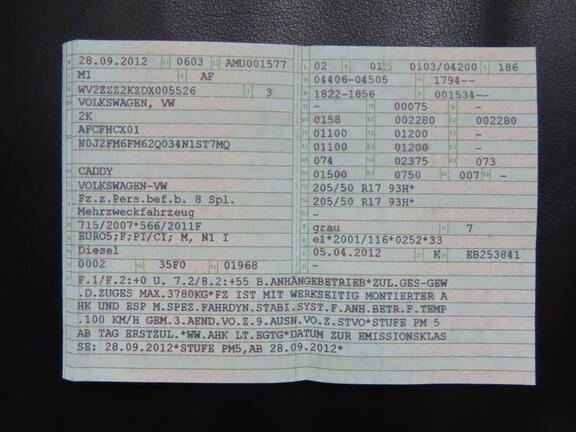 28.09.2012 0603 AMU001577
M1 AF
WV2ZZZ2KZDX005526 3
VOLKSWAGEN, VW
2K
AFCFHCX01
N0J2FM6FM62Q034N1ST7MQ
CADDY
VOLKSWAGEN-VW
Fz.z.Pers.bef.b. 8 Spl.
Mehrzweckfahrzeug
715/2007*566/2011F
EURO5;F;PI/CI; M, N1 I
Diesel
0002 35F0 01968
02 01 0103/04200 186
04406-04505 1794--
1822-1856 001534--
- 00075 -
0158 002280 002280
01100 01200 -
01100 01200 -
074 02375 073
01500 0750 007 -
205/50 R17 93H*
205/50 R17 93H*
-
grau 7
e1*2001/116*0252*33
05.04.2012 K EB253841
-
F.1/F.2:+0 U. 7.2/8.2:+55 B.ANHÄNGEBETRIEB*ZUL.GES-GEW
.D.ZUGES MAX.3780KG*FZ IST MIT WERKSEITIG MONTIERTER A
HK UND ESP M.SPEZ.FAHRDYN.STABI.SYST.F.ANH.BETR.F.TEMP
.100 KM/H GEM.3.AEND.VO.Z.9.AUSN.VO.Z.STVO*STUFE PM 5
AB TAG ERSTZUL.*WW.AHK LT.EGTG*DATUM ZUR EMISSIONSKLAS
SE: 28.09.2012*STUFE PM5,AB 28.09.2012*